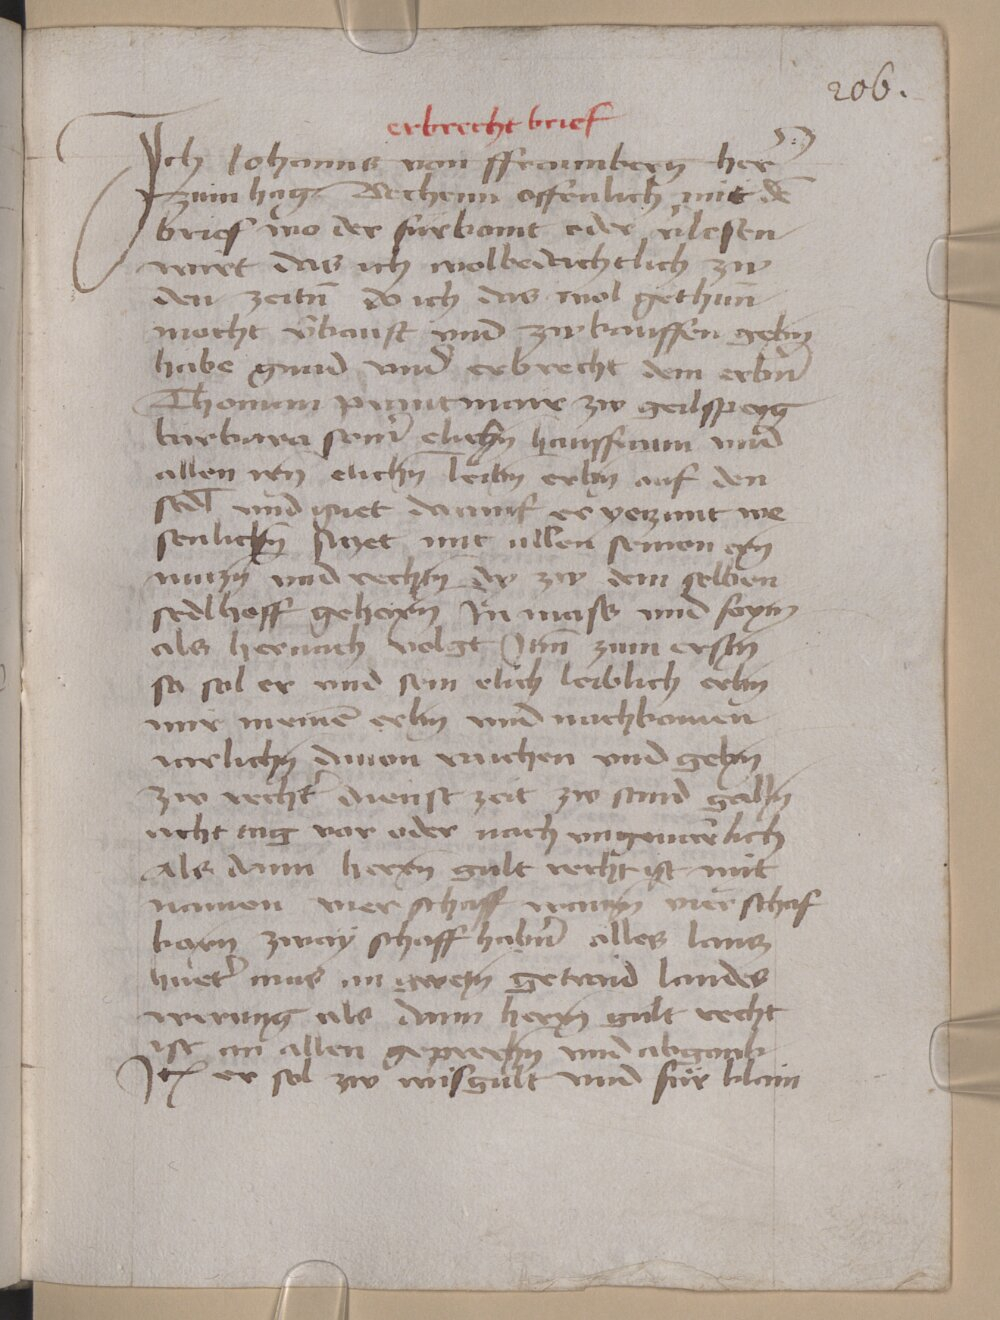 206.
erbrecht brief
Ich Johanns von ffraunberg her
zum hag Bechenn offenlich mit dē
brief wo der fürkomt oder v̄lesen
wirt das ich wolbedachtlich zw
den zeitn̄ do ich das wol gethun
mocht v̄kauft und zwkauffen gebn̄
habe gnad und erbrecht dem erbn̄
Thoman zw
barbara sein̄ elichn̄ hausfraun und
allen irn̄ elichn̄ leibn̄ erbn̄ auf den
sedl und guet darauf er yeczunt we
senlichn̄ siczet mit allen seinen ern̄
nuczn̄ und rechtn̄ dy zw dem selben
sedlhoff gehorn̄ In mass und form
als hernach volgt Itm̄ zum erstn̄
so sol er und sein elich leiblich erbn̄
mir meinē erbn̄ und nachkomen
iarlichn̄ dauon raichen und gebn̄
zw recht̄ dienst zeit zw sand galln̄
acht tag vor oder nach ungeuerlich
als dann herrn̄ gült recht ist mit
namen vier schaff waiczn̄ vier schaf
korn zway schaff habn̄ alles lanz
huet̄ mas getraid landes
werung als dann herrn̄ gült recht
ist an allen geprechn̄ und abgank
Itm̄ er sol zw wisgült und für klain